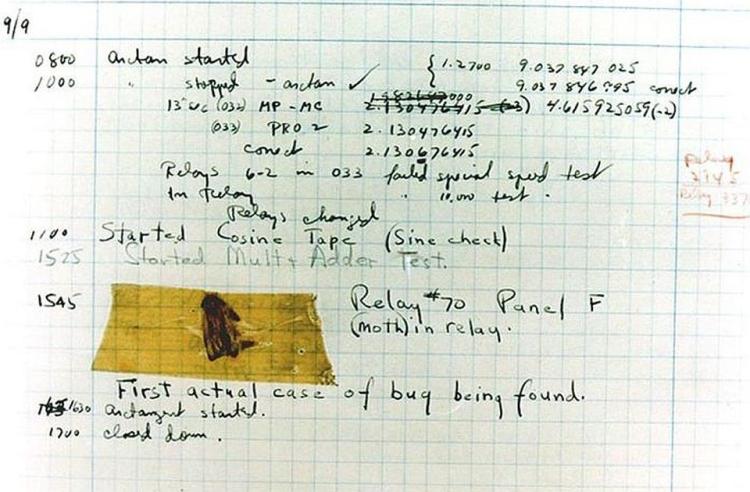 9/9
0800 antan started { 1.2700 9.037 847 025
1000 " stopped - antan ✓ 9.037 846 995 conect
13"uc (032) MP - MC 2.130476415 (-3) 4.615925059(-2)
(033) PRO 2 2.130476415
conect 2.130676415
Relays 6-2 in 033 failed special speed test
In Relay " 10,000 test .
Relays changed
Relay
2145
Relay 337
1100 Started Cosine Tape (Sine check)
1525 Started Mult + Adder Test.
1545 Relay #70 Panel F
(moth) in relay.
First actual case of bug being found.
1630 antangent started.
1700 closed down.